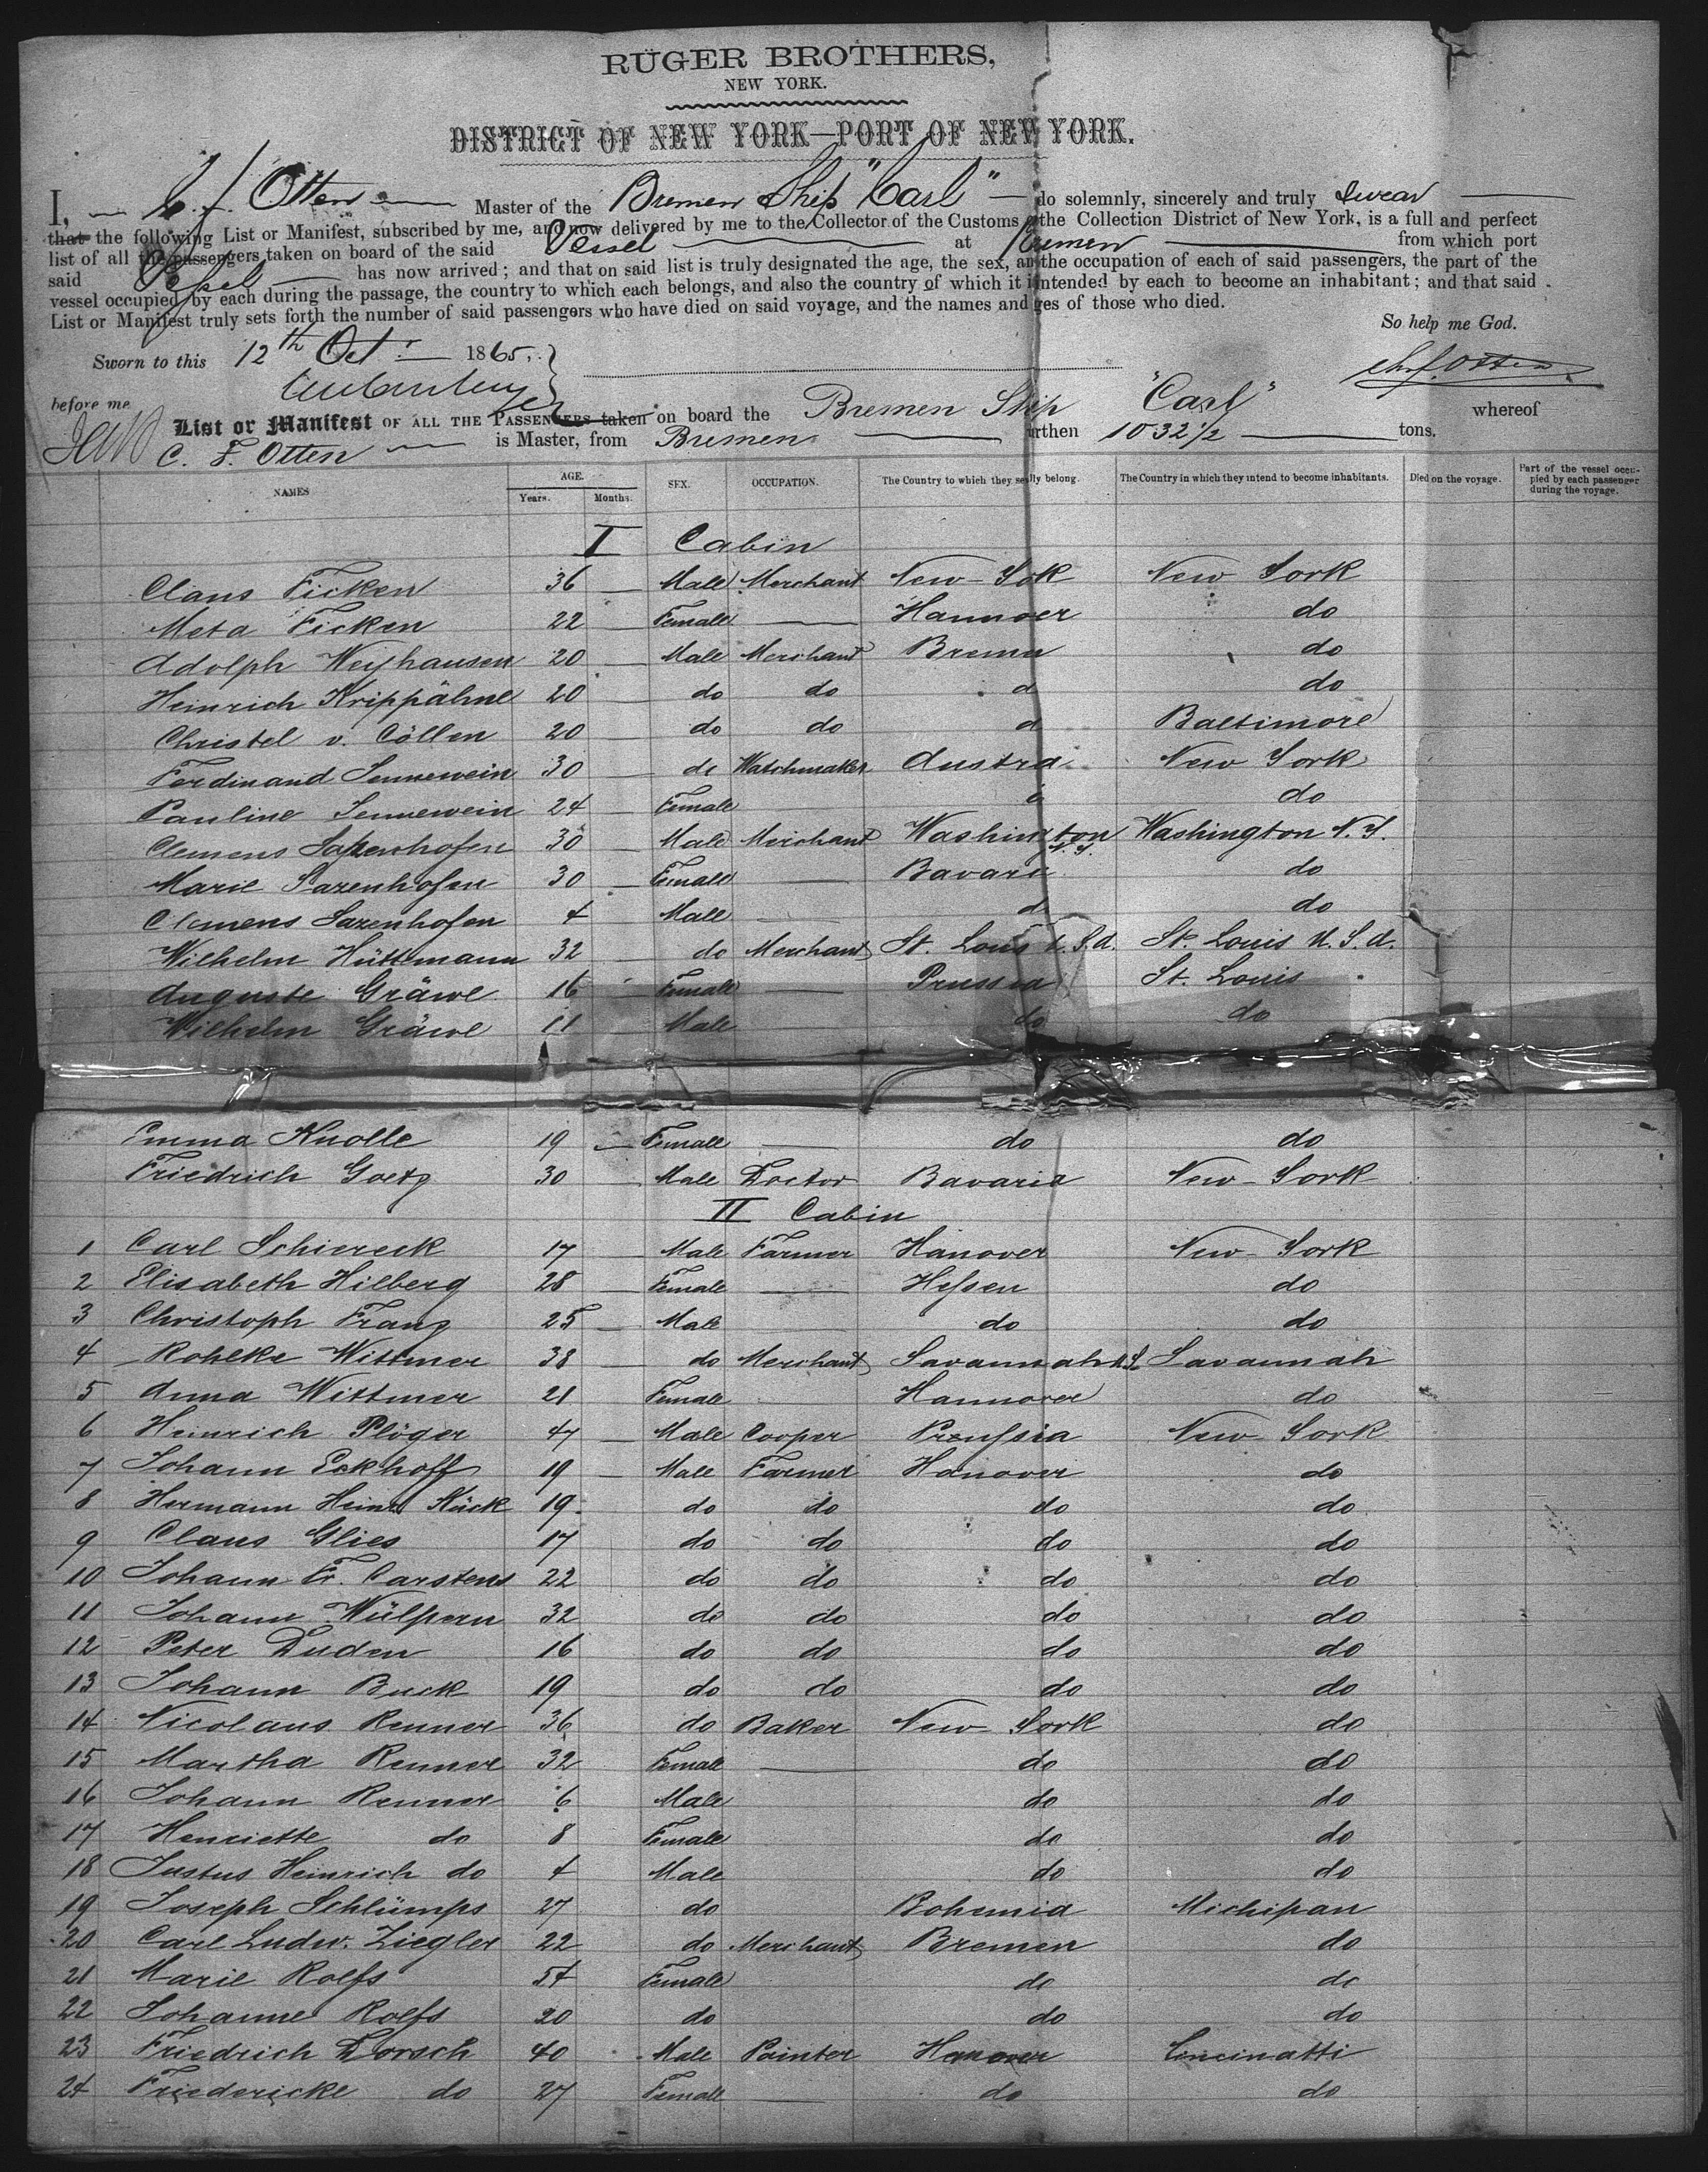 RÜGER BROTHERS,
NEW YORK.
DISTRICT OF NEW YORK—PORT OF NEW YORK.
I, C. F. Otten Master of the Bremen Ship "Carl" do solemnly, sincerely and truly swear
that the following List or Manifest, subscribed by me, and now delivered by me to the Collector of the Customs the Collection District of New York, is a full and perfect
list of all the passengers taken on board of the said Vessel at Bremen from which port
said Vessel has now arrived; and that on said list is truly designated the age, the sex, an the occupation of each of said passengers, the part of the
vessel occupied by each during the passage, the country to which each belongs, and also the country of which it intended by each to become an inhabitant; and that said
List or Manifest truly sets forth the number of said passengers who have died on said voyage, and the names and ges of those who died.
So help me God.
Sworn to this 12th Octr 1865.
before me
Chr. f. Otten
List or Manifest OF ALL THE PASSENGERS taken on board the Bremen Ship "Carl" whereof
C. F. Otten is Master, from Bremen urthen 1032 1/2 tons.
NAMES AGE. Years. Months. SEX. OCCUPATION. The Country to which they se lly belong. The Country in which they intend to become inhabitants. Died on the voyage. Part of the vessel occupied by each passenger during the voyage.
I Cabin
Claus Ficken 36 — Male Merchant New-Yok New York
Meta Ficken 22 — Female — Hannover do
Adolph Weyhausen 20 — Male Merchant Bremen do
Heinrich Krippähne 20 — do do d do
Christel v. Cöllen 20 — do do d Baltimore
Ferdinand Jennewein 30 — do Watchmaker Austria New York
Pauline Jennewein 24 — Female do
Clemens Sazenhofen 30 — Male Merchant Washington N.Y. Washington N.Y.
Marie Sazenhofen 30 — Female — Bavaria do
Clemens Sazenhofen 4 Male — d do
Wilhelm Hüttmann 32 — do Merchant St. Louis U.S.A. St. Louis U.S.A.
Auguste Gräwe 16 — Female — Prussia St. Louis
Wilhelm Gräwe 11 Male do do
Emma Knolle 19 — Female — do do
Friedrich Goetz 30 — Male Doctor Bavaria New-York
II Cabin
1 Carl Schiereck 17 — Male Farmer Hanover New-York
2 Elisabeth Hilberg 28 — Female — Hessen do
3 Christoph Franz 25 — Male — do do
4 Rohlke Wittmer 38 — do Merchant Savannah Savannah
5 Anna Wittmer 21 Female Hannover do
6 Heinrich Plöger 47 — Male Cooper Preussia New York
7 Johann Eckhoff 19 — Male Farmer Hanover do
8 Hermann Heinr Kück 19 do do do do
9 Claus Glies 17 do do do do
10 Johann Fr. Carstens 22 do do do do
11 Johann Wülpern 32 do do do do
12 Peter Duden 16 do do do do
13 Johann Buck 19 do do do do
14 Nicolaus Renner 36 do Baker New-York do
15 Martha Renner 32 Female — do do
16 Johann Renner 6 Male do do
17 Henriette do 8 Female do do
18 Justus Heinrich do 4 Male do do
19 Joseph Schlümps 27 do Bohemia Michipan
20 Carl Ludw. Ziegler 22 do Merchant Bremen do
21 Marie Rolfs 54 Female do do
22 Johanne Rolfs 20 do do do
23 Friedrich Dorsch 40 Male Painter Hanover Cincinatti
24 Friedericke do 27 Female — do do